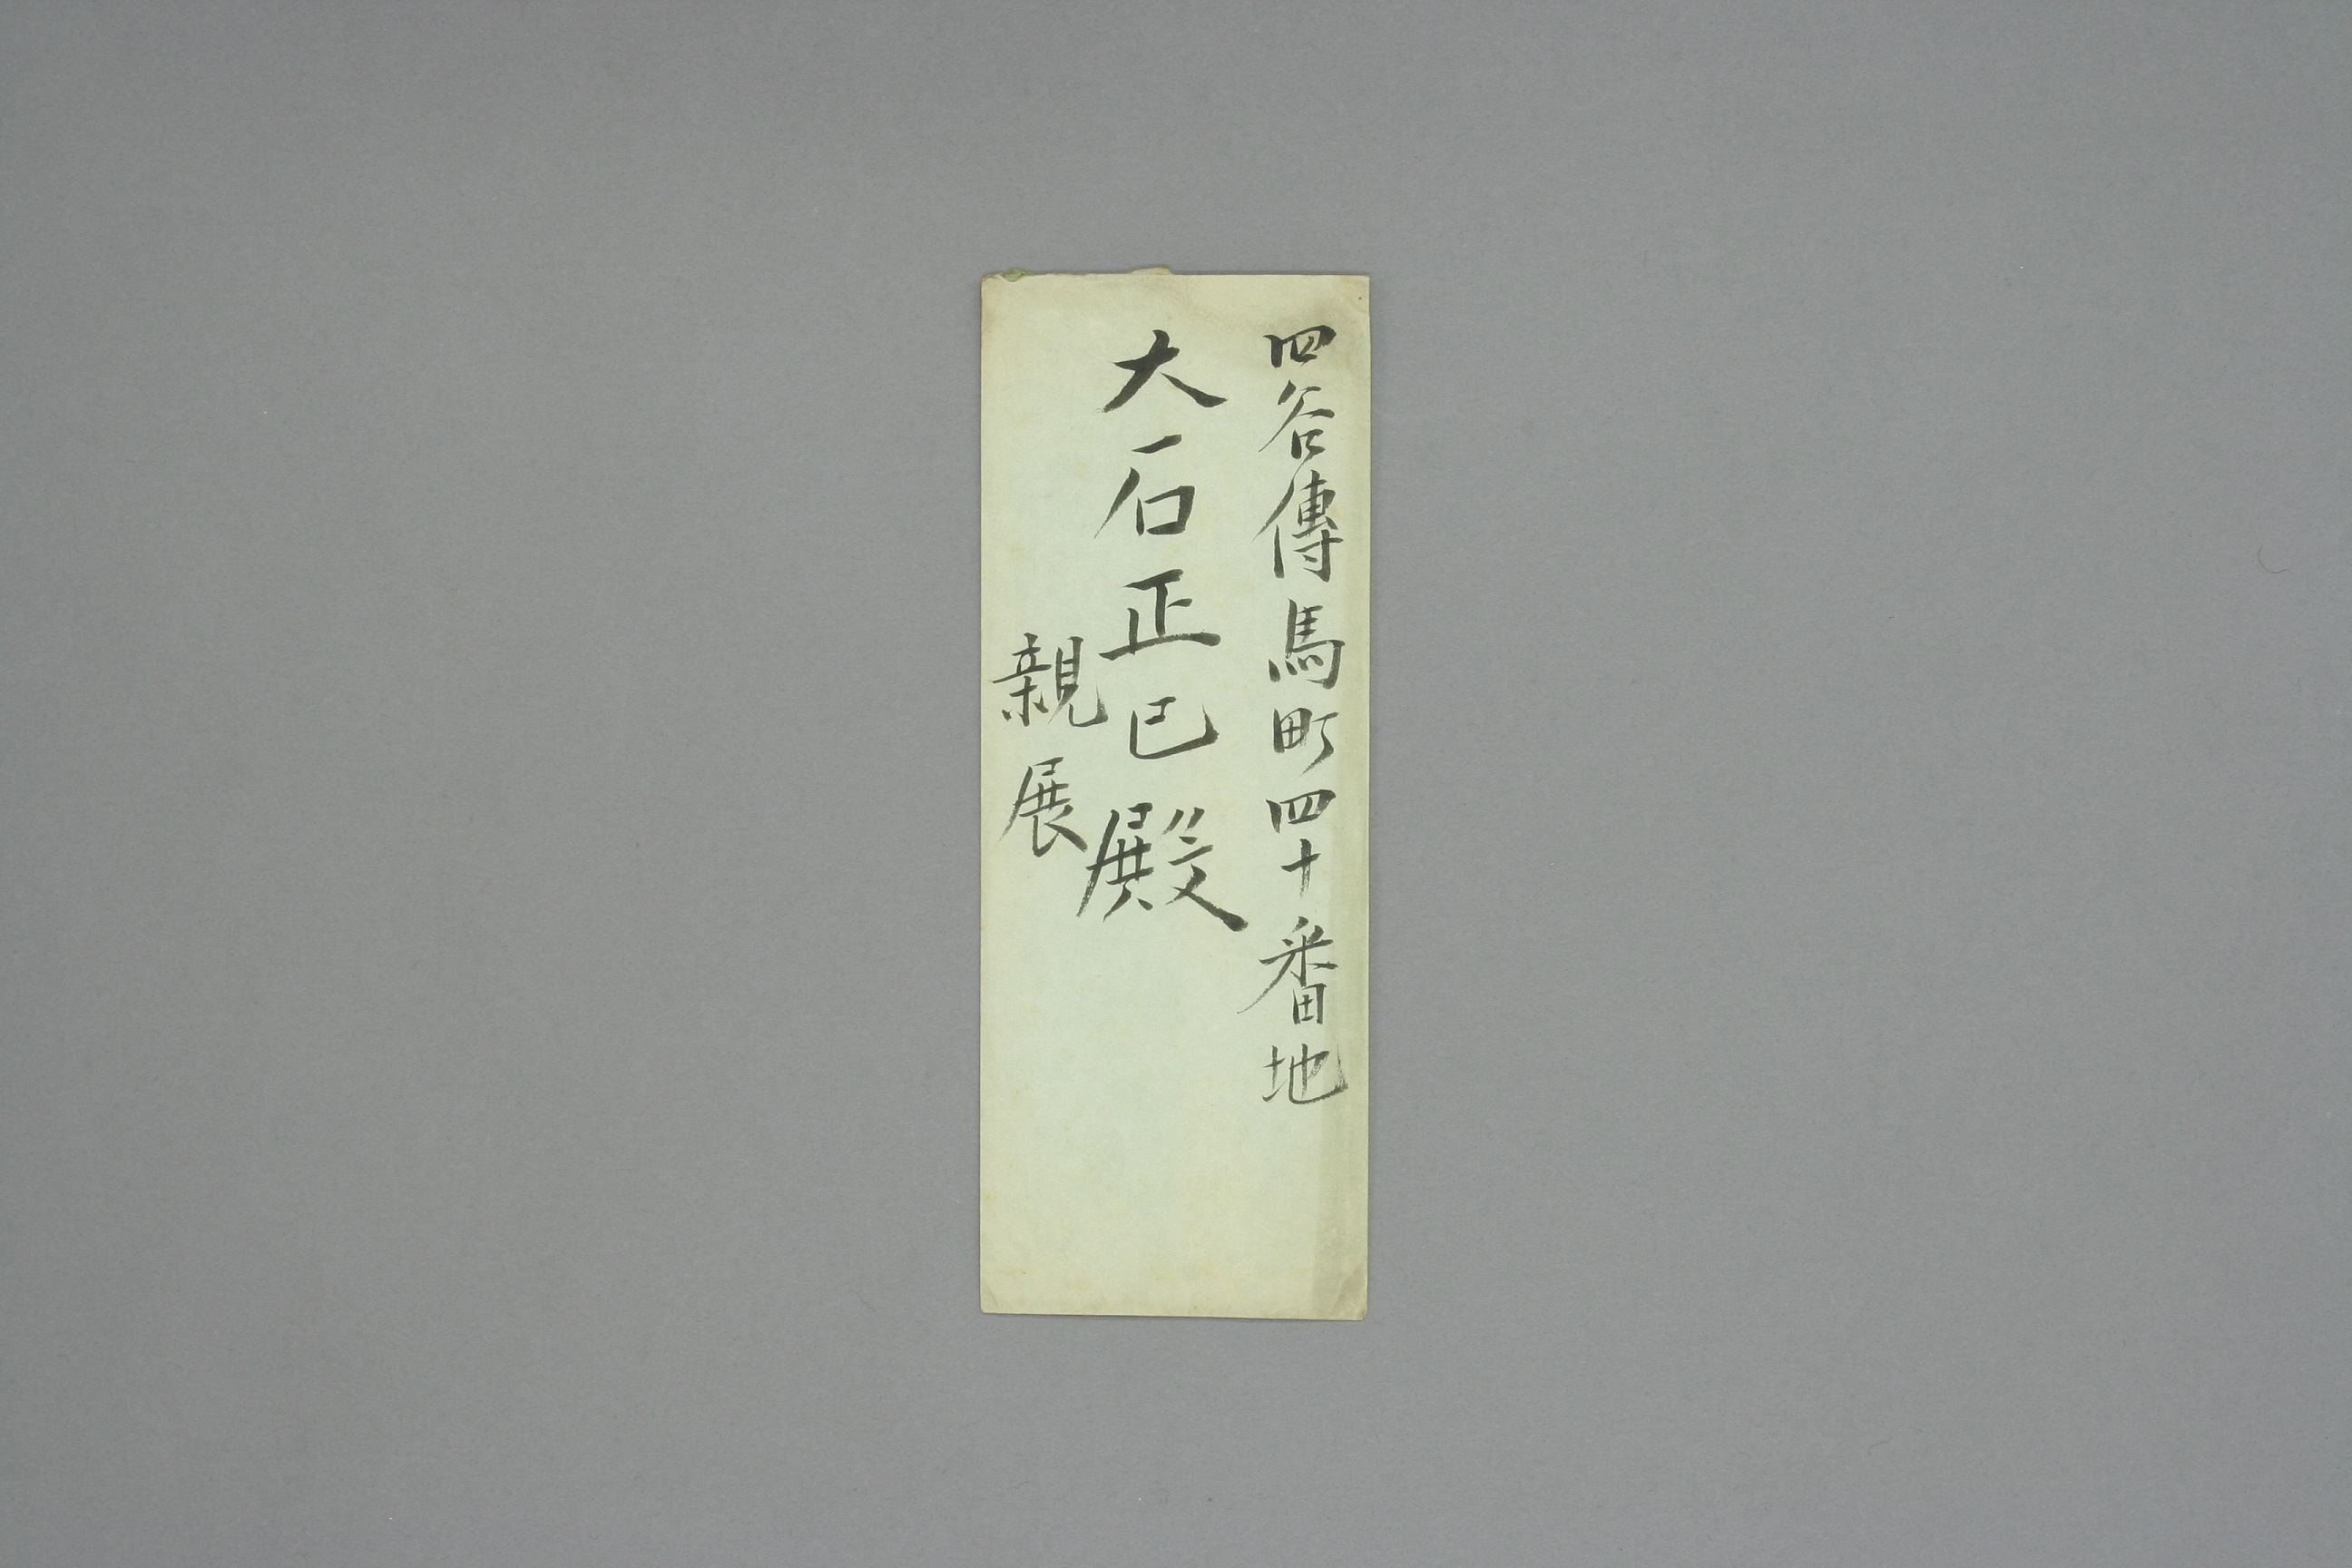 四谷傳馬町四十番地
大石正巳殿
親展